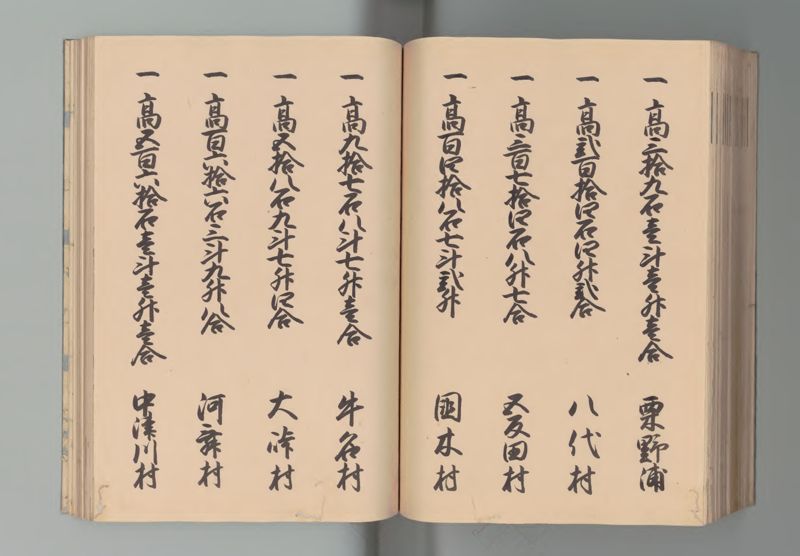 一 高三拾九石壱斗壱升壱合 栗野浦
一 高弐百拾四石四升弐合 八代村
一 高三百七拾四石八升七合 五反田村
一 高百四拾八石七斗弐升 国木村
一 高九拾七石八斗七升壱合 牛名村
一 高五拾八石九斗七升四合 大峠村
一 高百六拾六石三斗九升八合 河舞村
一 高五百六拾石壱斗壱升壱合 中津川村